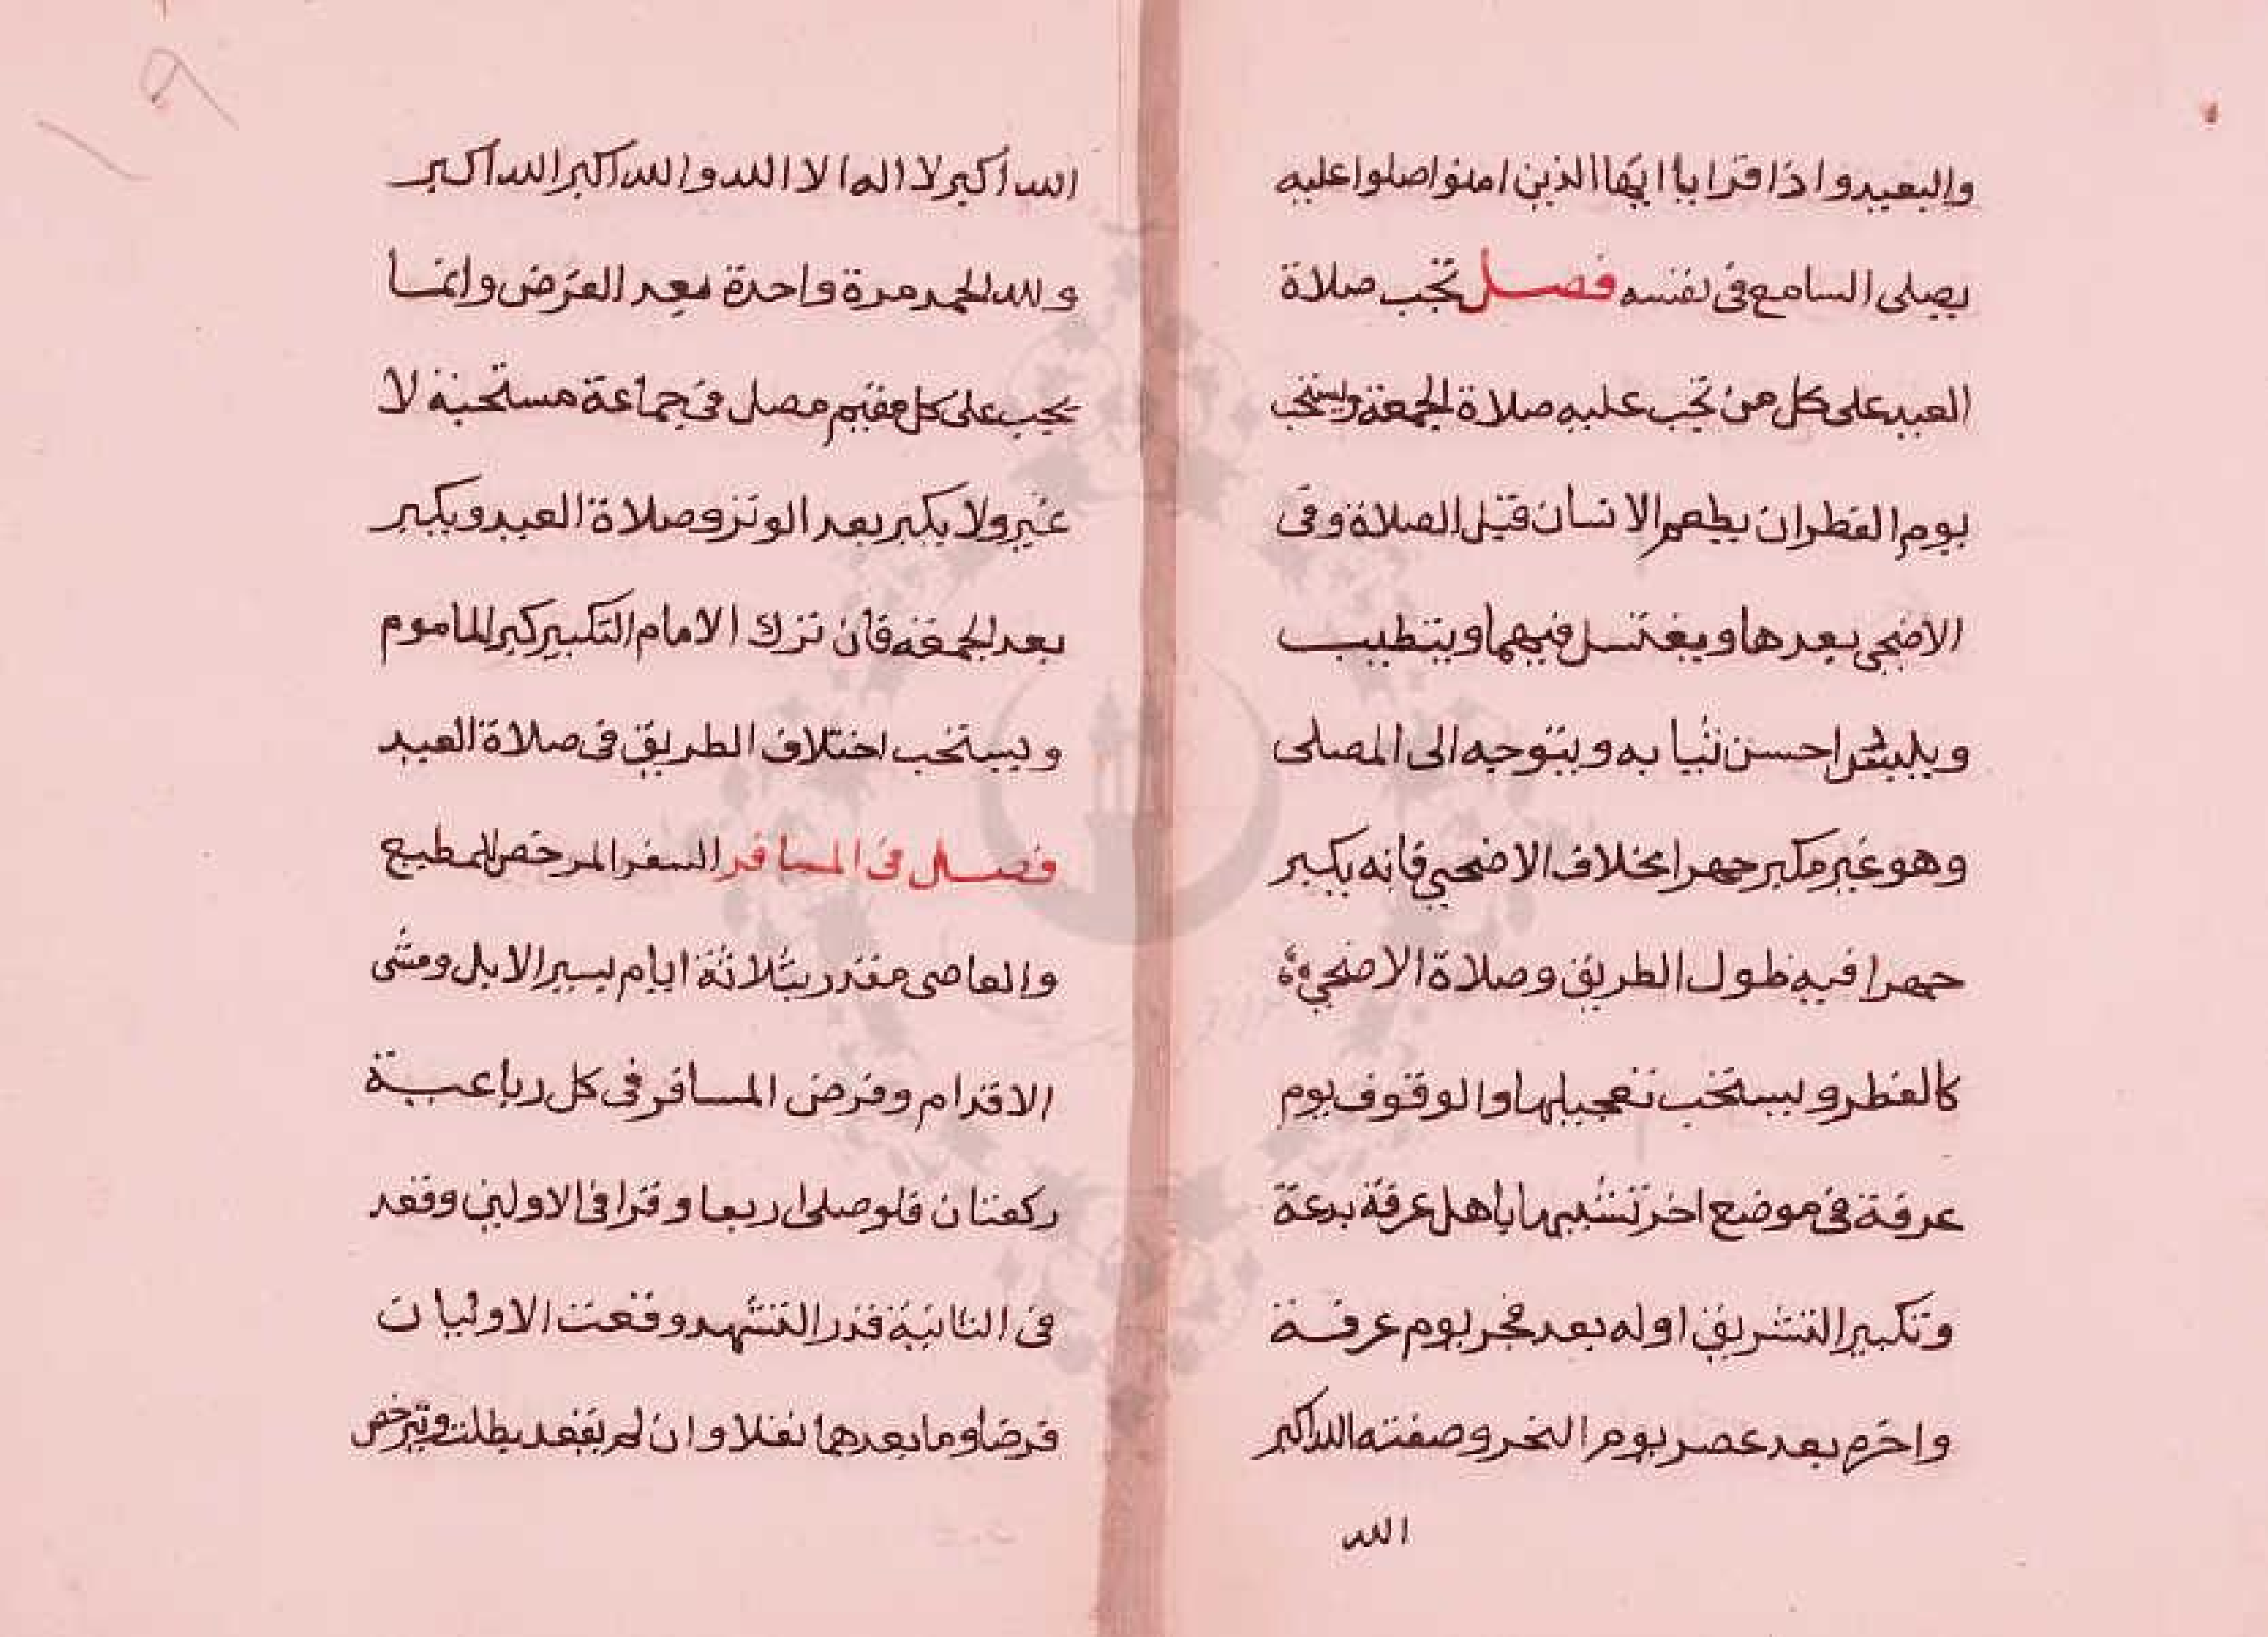 والبعيد واذا قرا ياايها الذين امنوا صلوا عليه
يصلى السامع فى نفسه فصل تجب صلاة
العيد على كل من تجب عليه صلاة الجمعة ويستحب
يوم الفطر ان يطعم الانسان قبل الصلاة وفى
الاضحى بعدها ويغتسل فيهما ويتطيب
ويلبس احسن ثيابه ويتوجه الى المصلى
وهو غير مكبر جهرا بخلاف الاضحى فانه يكبر
جهرا فيه طول الطريق وصلاة الاضحى
كالفطر ويستحب تعجيلها والوقوف يوم
عرفة فى موضع اخر تشبيها باهل عرفة بدعة
وتكبير التشريق اوله بعد فجر يوم عرفة
واخره بعد عصر يوم النحر وصفته الله اكبر
الله
١٩
الله اكبر لا اله الا الله والله اكبر الله اكبر
ولله الحمد مرة واحدة بعد الفرض وانما
يجب على كل مقيم مصل فى جماعة مستحبة لا
غير ولا يكبر بعد الوتر وصلاة العيد ويكبر
بعد الجمعة فان ترك الامام التكبير كبر الماموم
ويستحب اختلاف الطريق فى صلاة العيد
فصل فى المسافر السفر المرخص للمطيع
والعاصى مقدر بثلاثة ايام بسير الابل ومشى
الاقدام وفرض المسافر فى كل رباعية
ركعتان فلو صلى اربعا وقرا فى الاولين وقعد
فى الثانية قدر التشهد وقعت الاوليان
فرضا وما بعدهما نفلا وان لم يقعد بطلت ويترخص